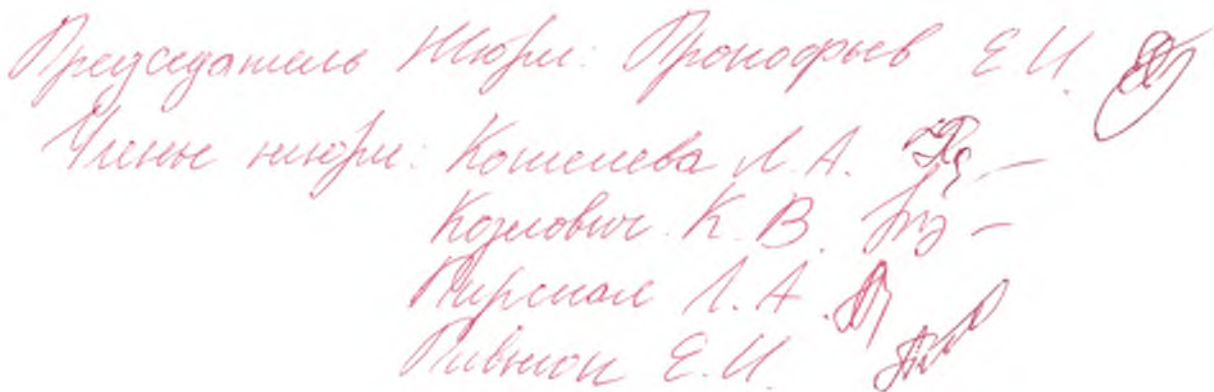 Председатель Жюри: Прокофьев Е.И.
Члены жюри: Кошелева Л.А.
Козлович К.В.
Л.А.
Е.И.